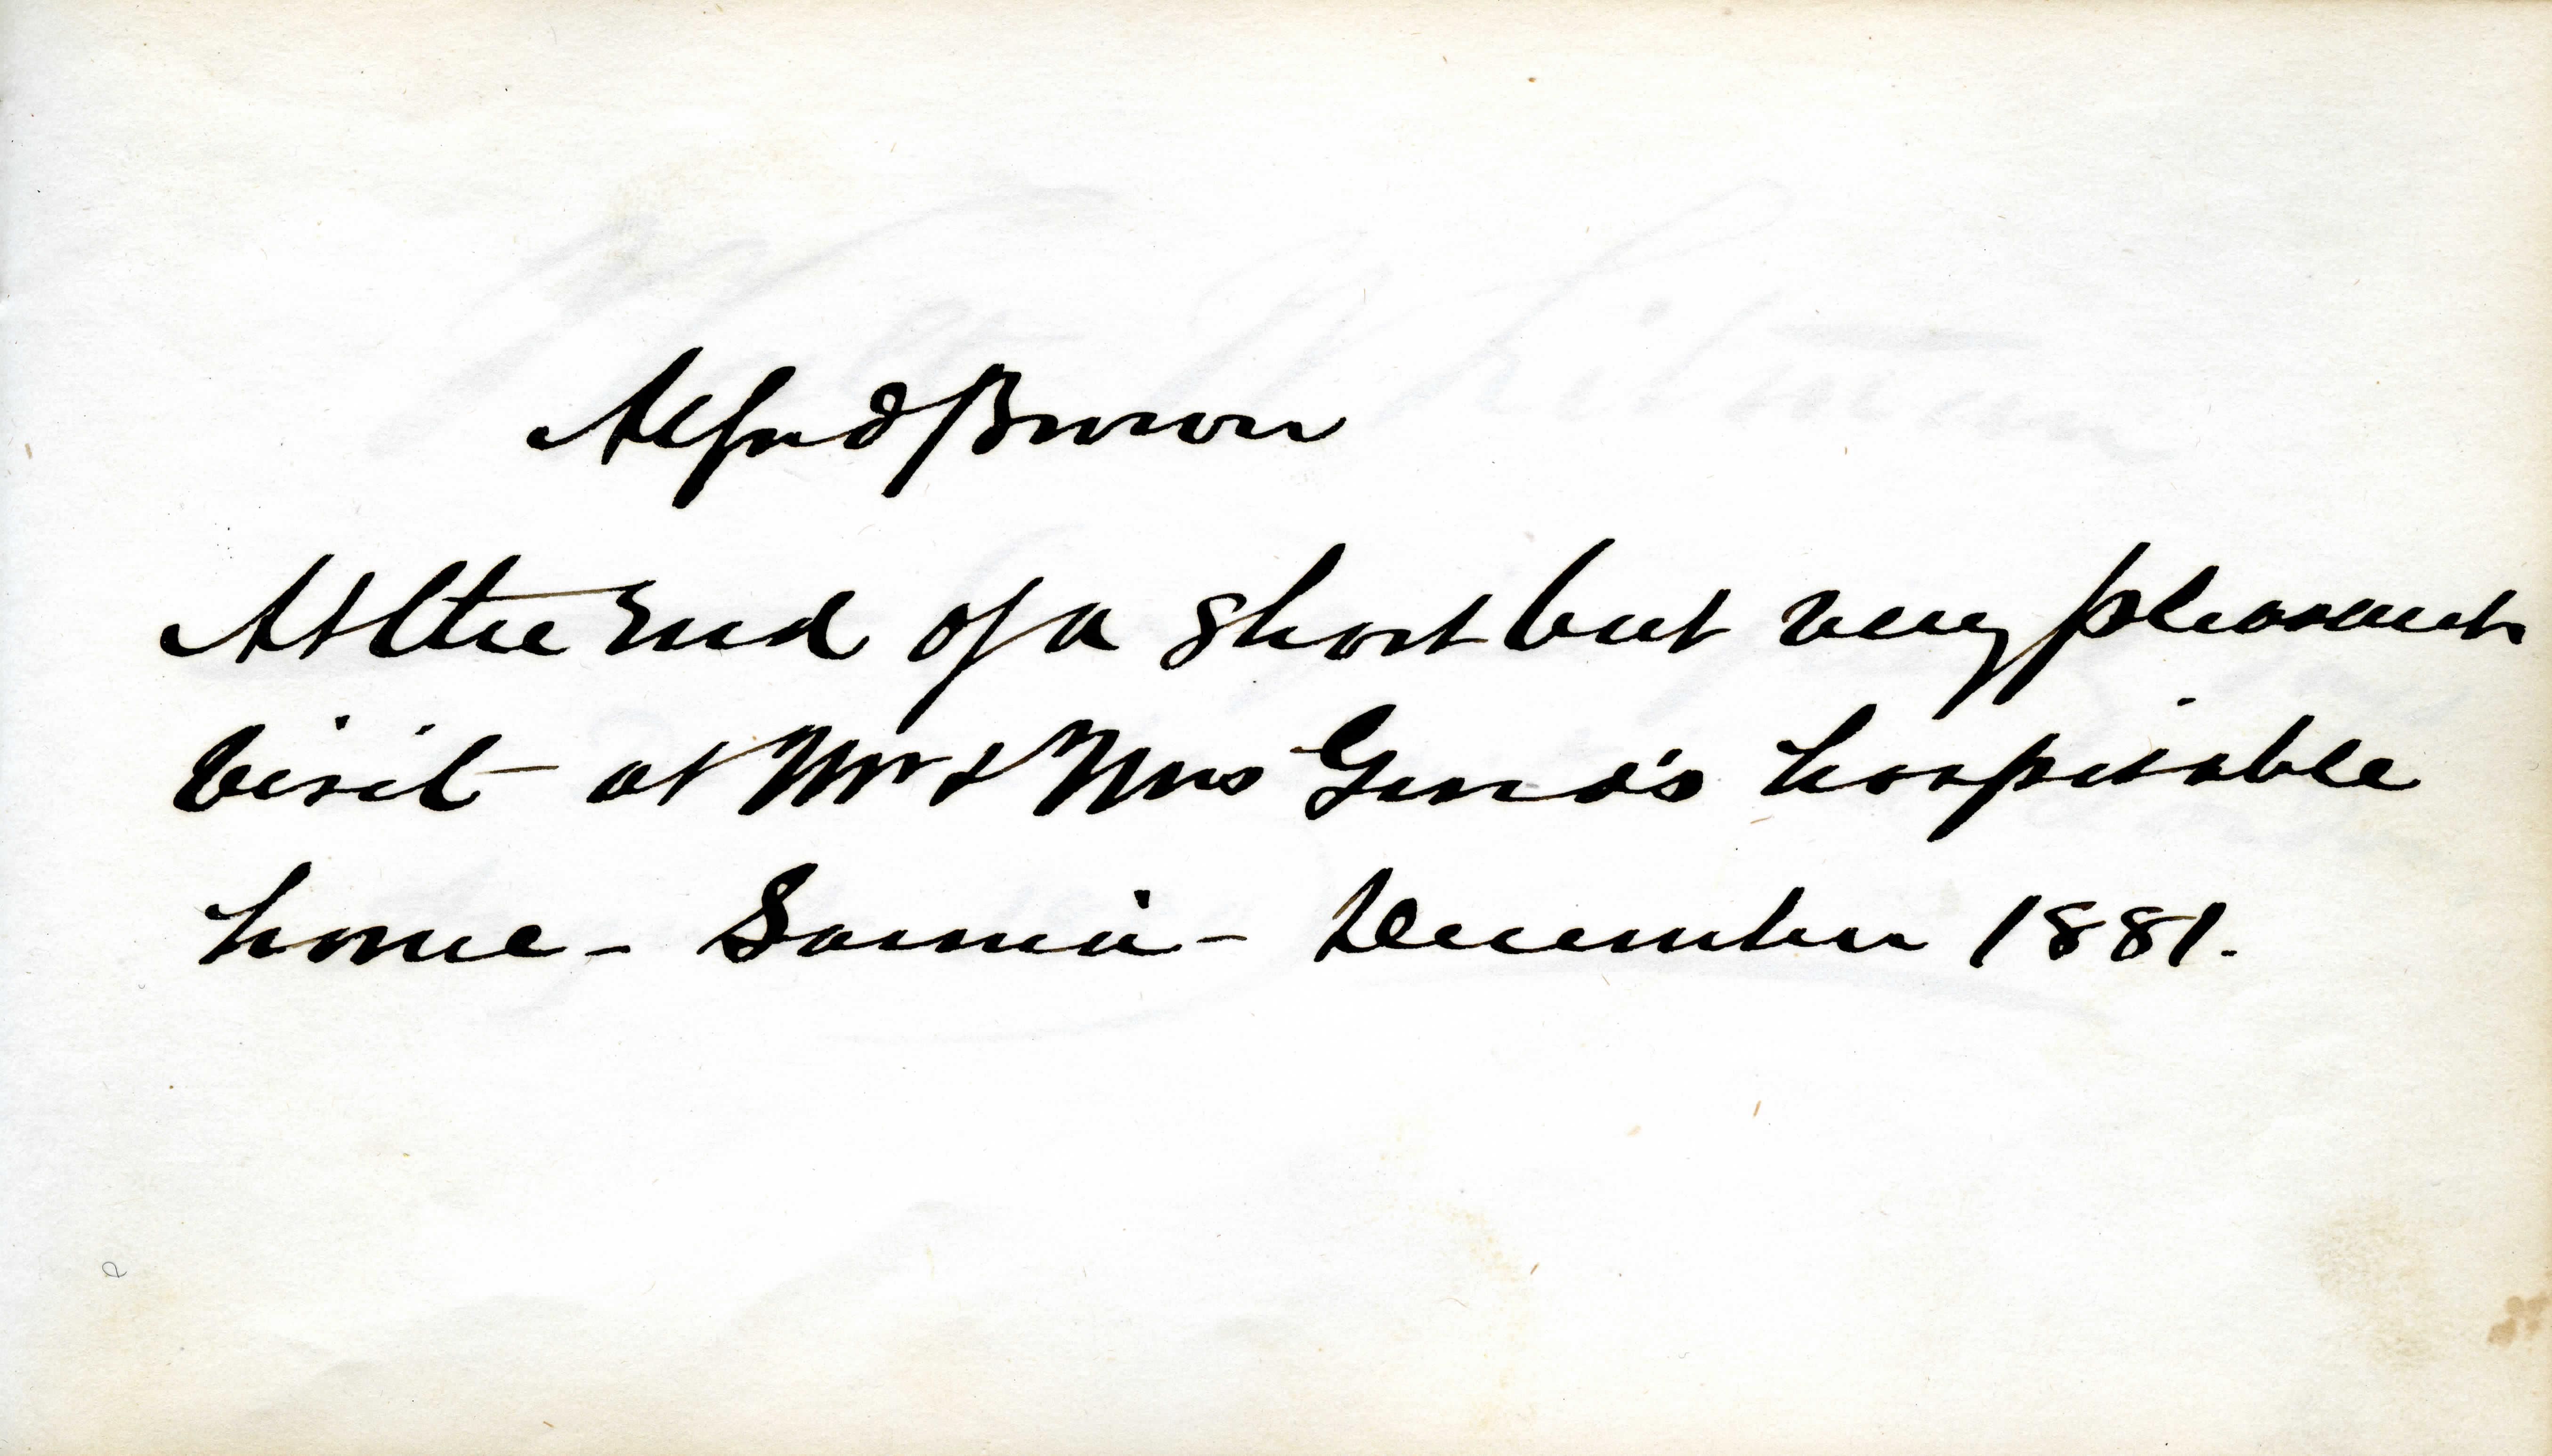 Alfred Brown
At the End of a short but very pleasant
visit - at Mr & Mrs Gurd's hospitable
home - Sarnia - December 1881.